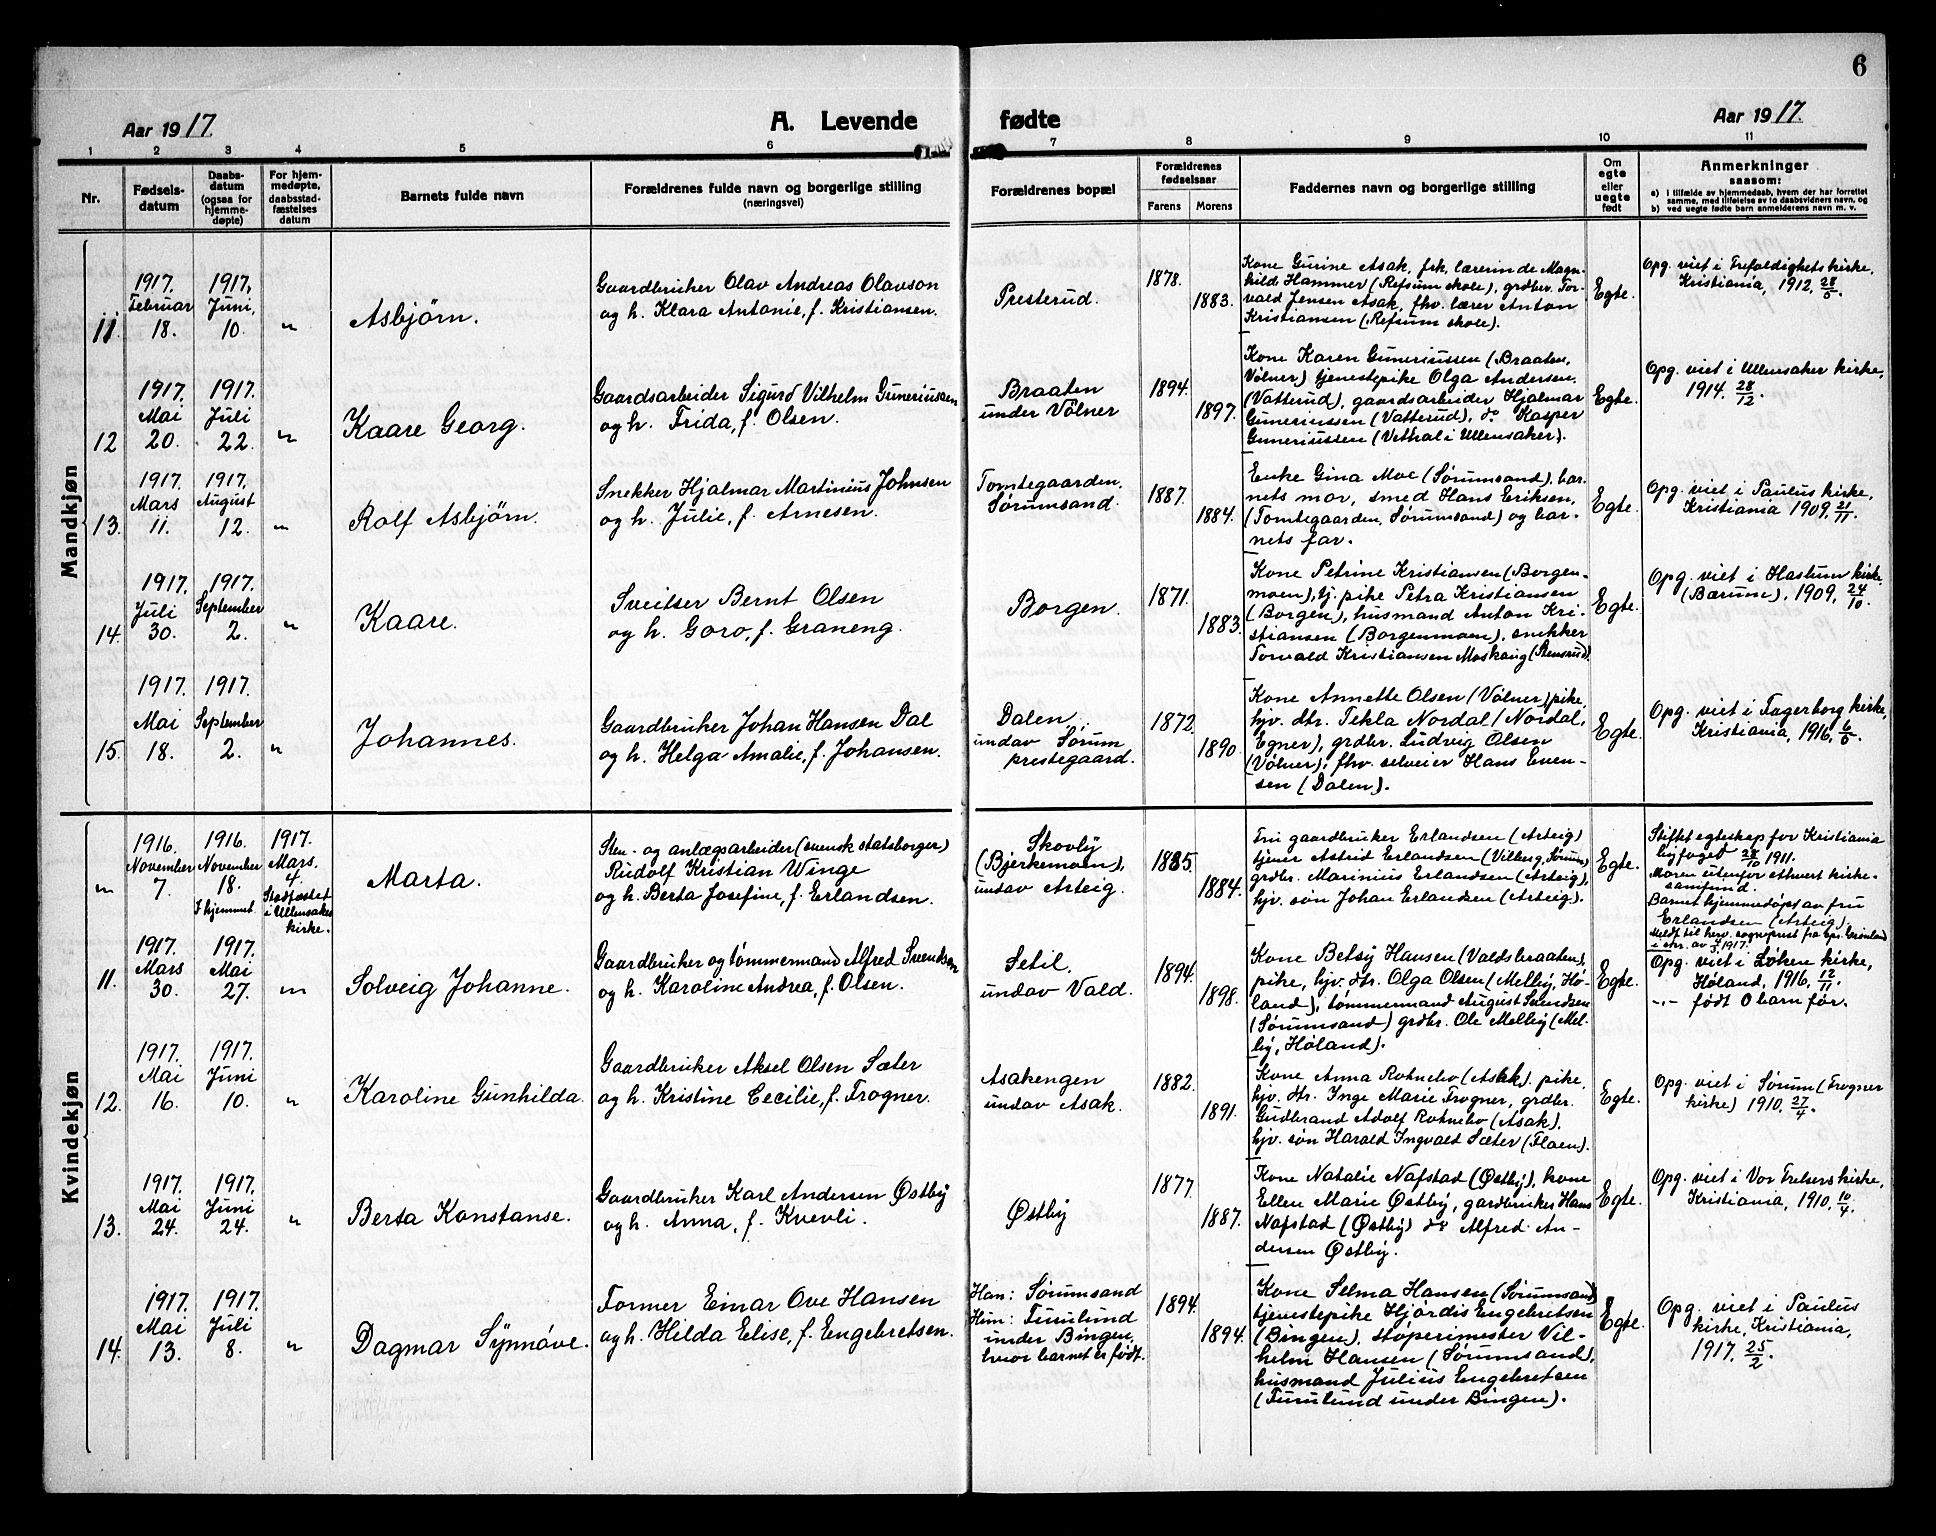 6
Aar 1917. A. Levende fødte Aar 1917.
1 2 3 4 5 6 7 8 9 10 11
Nr.
Fødsels-
datum
Daabs-
datum
(ogsaa for
hjemme-
døpte)
For hjem-
medøpte,
daabsstad-
fæstelses
datum
Barnets fulde navn
Forældrenes fulde navn og borgerlige stilling
(næringsvei)
Forældrenes bopæl
Forældrenes
fødselsaar
Farens Morens
Faddernes navn og borgerlige stilling
Om
egte
eller
uegte
født
Anmerkninger
saasom:
a) i tilfælde av hjemmedaab, hvem der har forrettet
samme, med tilføielse av to daabsvidners navn, og
b) ved uegte fødte barn anmelderens navn m. v.
Mandkjøn
11.
1917.
Februar
18.
1917.
Juni,
10.
"
Asbjørn.
Gaardbruker Olav Andreas Olavson
og h. Klara Antonie, f. Kristiansen.
Presterud.
1878.
1883.
Kone Gurine Asak, frk. lærerinde Magn-
hild Hammer (Refsum skole), grdbr. Tor-
vald Jensen Asak, fhv. lærer Anton
Kristiansen (Refsum skole).
Egte.
Opg. viet i Trefoldighetskirke,
Kristiania, 1912, 28/5.
12
1917.
Mai
20.
1917.
Juli
22.
"
Kaare Georg.
Gaardsarbeider Sigurd Vilhelm Guneriussen
og h. Frida, f. Olsen.
Braaten
under Vølner
1894.
1897.
Kone Karen Guneriussen (Braaten,
Vølner) tjenestepike Olga Andersen,
(Vatterud), gaardsarbeider Hjalmar
Guneriussen (Vatterud), do Kasper
Guneriussen (Vethal i Ullensaker).
Egte.
Opg. viet i Ullensaker kirke,
1914. 28/12.
13.
1917.
Mars
11.
1917.
August
12.
"
Rolf Asbjørn.
Snekker Hjalmar Martinius Johnsen
og h. Julie, f. Arnesen.
Tomtegaarden,
Sørumsand.
1887.
1884.
Enke Gina Moe (Sørumsand), bar-
nets mor, smed Hans Eriksen,
(Tomtegaarden, Sørumsand) og bar-
nets far.
Egte.
Opg. viet i Paulus kirke,
Kristiania 1909, 21/11.
14.
1917.
Juli
30.
1917.
September
2.
"
Kaare.
Sveitser Bernt Olsen
og h. Goro, f. Graneng.
Borgen.
1871.
1883.
Kone Petrine Kristiansen (Borgen-
moen), tj. pike Petra Kristiansen
(Borgen), husmand Anton Kri-
stiansen (Borgenmoen), snekker
Torvald Kristiansen Moskaug (Stensrud).
Egte.
Opg. viet i Haslum kirke,
(Bærum), 1909, 24/10.
15.
1917.
Mai
18.
1917.
September
2.
"
Johannes.
Gaardbruker Johan Hansen Dal
og h. Helga Amalie, f. Johansen.
Dalen
undav Sørum
prestegaard.
1872.
1890.
Kone Annette Olsen (Vølner), pike,
hjv. dtr. Tekla Nordal (Nordal,
Egner), grdbr. Ludvig Olsen
(Vølner), fhv. selveier Hans Even-
sen (Dalen).
Egte.
Opg. viet i Fagerborg kirke,
Kristiania, 1916, 6/5.
Kvindekjøn
"
1916.
November
7.
1916.
November
18.
I hjemmet.
1917.
Mars.
4.
Stadfæstet
i Ullensaker
kirke.
Marta.
Sten- og anlægsarbeider (svensk statsborger)
Rudolf Kristian Winge
og h. Berta Josefine, f. Erlandsen.
Skovly
(Bjerkemoen),
undav Arteig.
1885.
1884.
Fru gaardbruker Erlandsen (Arteig)
tjener Astrid Erlandsen (Vilberg, Sørum)
grdbr. Marinius Erlandsen (Arteig),
hjv. søn Johan Erlandsen (Arteig).
Egte.
Stiftet egteskap for Kristiania
byfoged 28/10 1911.
Moren utenfor ethvert kirke-
samfund.
Barnet hjemmedøpt av fru
Erlandsen (Arteig)
Meldt til herv. sogneprest fra Spr. Grønland
i skr. av 4/5 1917.
11.
1917.
Mars
30.
1917.
Mai
27.
"
Solveig Johanne.
Gaardbruker og tømmermand Alfred Svendsen
og h. Karoline Andrea, f. Olsen.
Setil.
undav Vald.
1894.
1898.
Kone Betsy Hansen (Valdsbraaten),
pike, hjv. dtr. Olga Olsen (Melby, Hø-
land), tømmermand August Svendsen
(Sørumsand) grdbr. Ole Melby (Mel-
by, Høland).
Egte.
Opg. viet i Løken kirke,
Høland, 1916, 12/11.
-"- født 0 barn før.
12.
1917.
Mai
16.
1917.
Juni
10.
"
Karoline Gunhilda.
Gaardbruker Aksel Olsen Sæter
og h. Kristine Cecilie, f. Frogner.
Asakengen
undav Asak.
1882.
1891.
Kone Anna Rotnebo (Asak). pike,
hjv. dtr. Inge Marie Frogner, grdbr.
Gudbrand Adolf Rotnebo (Asak),
hjv. søn Harald Ingvald Sæter (Flaen).
Egte.
Opg. viet i Sørum (Frogner
kirke) 1910, 27/4.
13.
1917.
Mai
24.
1917.
Juni
24.
"
Berta Konstanse.
Gaardbruker Karl Andersen Østby
og h. Anna, f. Kvevli.
Østby
1877.
1887.
Kone Natalie Nafstad (Østby), kone
Ellen Marie Østby, gardbruker Hans
Nafstad (Østby) do Alfred An-
dersen Østby.
Egte.
Opg. viet i Vor Frelsers kirke,
Kristiania, 1910, 10/4.
14.
1917.
Mai
13.
1917.
Juli
8.
"
Dagmar Synnøve.
Former Einar Ove Hansen
og h. Hilda Elise, f. Engebretsen.
Han: Sørumsand
Hun: Furulund
under Bingen,
hvor barnet er født.
1894.
1894.
Kone Selma Hansen (Sørumsand)
tjenestepike Hjørdis Engebretsen
(Bingen), støperimester Vil-
helm Hansen (Sørumsand),
husmand Julius Engebretsen
(Furulund under Bingen).
Egte.
Opg. viet i Paulus
kirke, Kristiania,
1917, 25/2.